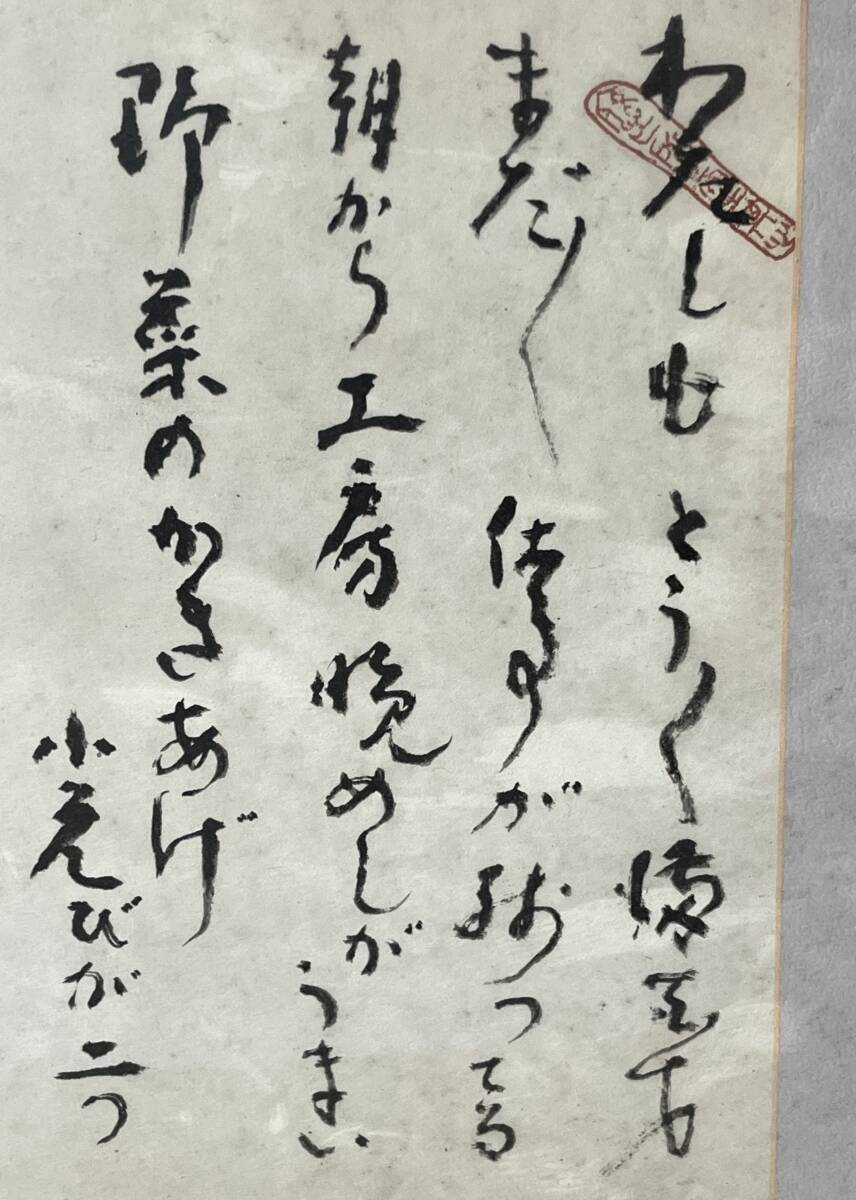 わたしもとう〱満才
まだ〱仕事が残つてる
朝から工房晩めしが
うまい
野菜のかきあげ
小えびが二つ